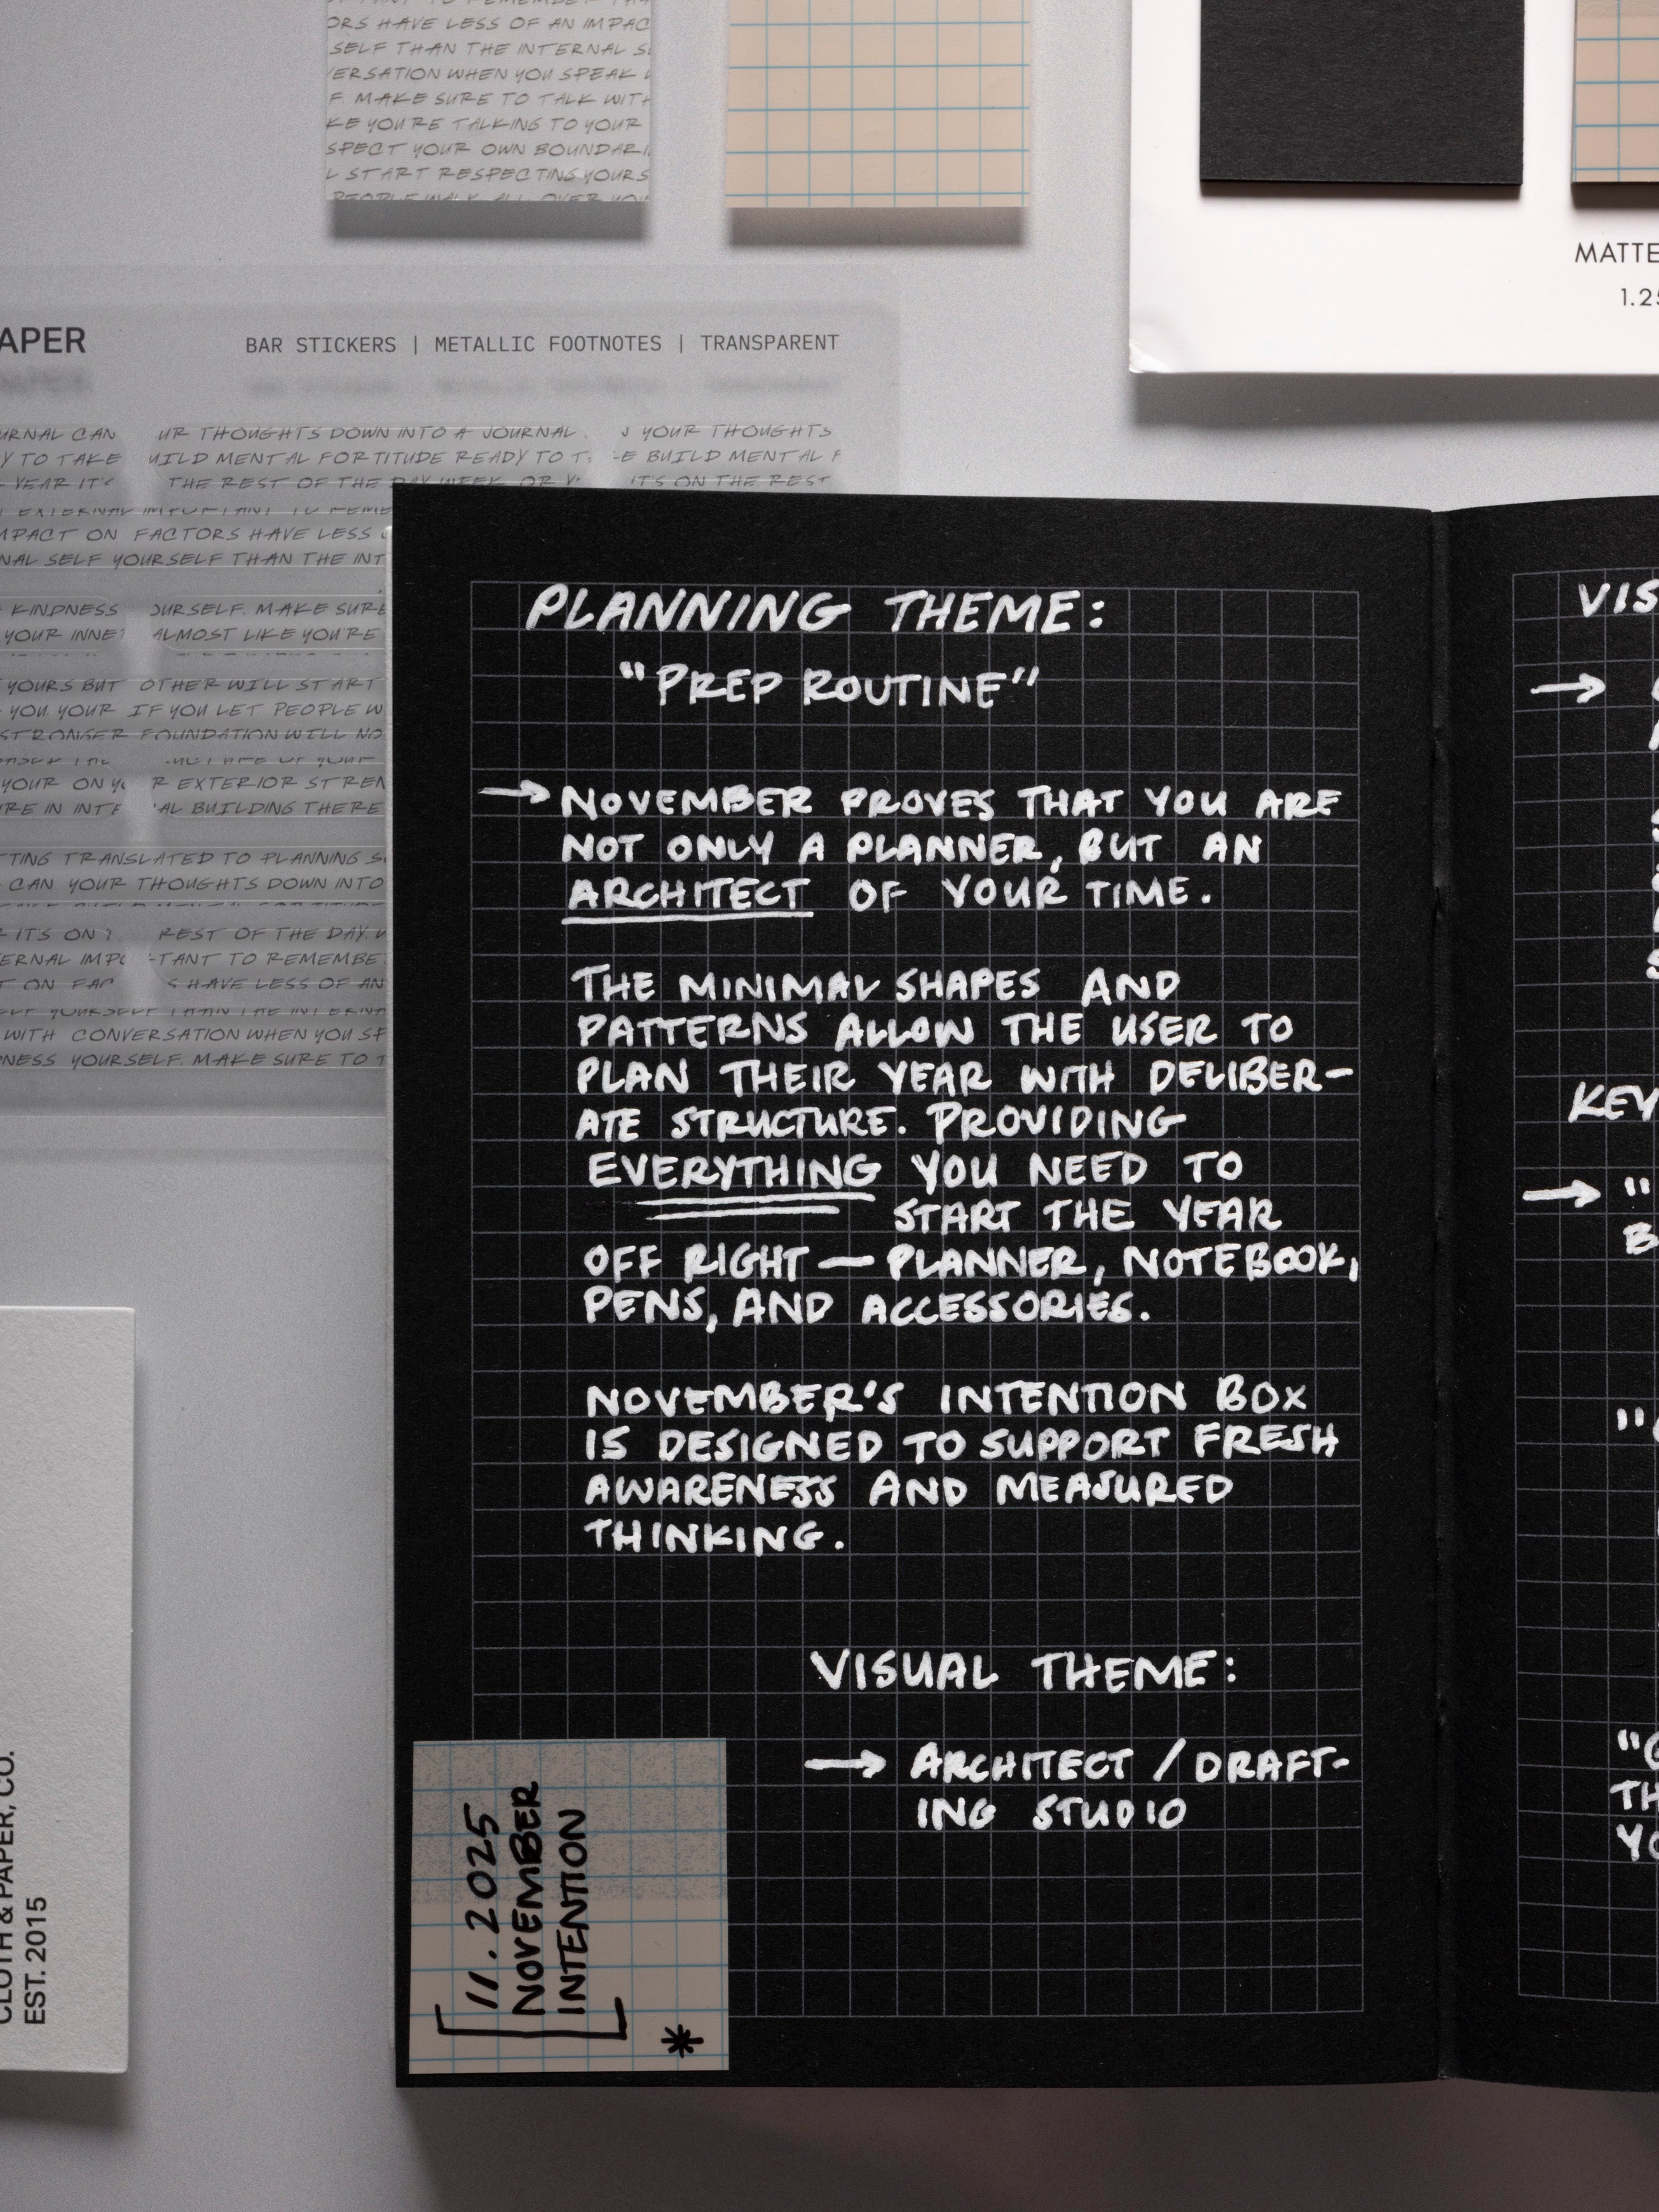 ORS HAVE LESS OF AN IMPAC
SELF THAN THE INTERNAL
ERSATION WHEN YOU SPEAK
F. MAKE SURE TO TALK WITH
KE YOU'RE TALKING TO YOUR
SPECT YOUR OWN BOUNDARI
L START RESPECTING YOURS
PEOPLE WALK ALL OVER YOU
MATTE
1.25
APER
BAR STICKERS | METALLIC FOOTNOTES | TRANSPARENT
URNAL CAN UR THOUGHTS DOWN INTO A JOURNAL YOUR THOUGHTS
Y TO TAKE UILD MENTAL FORTITUDE READY TO T E BUILD MENTAL F
YEAR IT'S THE REST OF THE DAY WEEK, OR Y ITS ON THE REST
MPACT ON FACTORS HAVE LESS
NAL SELF YOURSELF THAN THE INT
KINDNESS OURSELF. MAKE SURE
YOUR INNE ALMOST LIKE YOU'RE
YOURS BUT OTHER WILL START
YOU. YOUR IF YOU LET PEOPLE W
STRONGER FOUNDATION WILL NO
YOUR ON YO R EXTERIOR STREN
RE IN INTE AL BUILDING THERE
TTING TRANSLATED TO PLANNING S
CAN YOUR THOUGHTS DOWN INTO
ITS ON REST OF THE DAY, W
ERNAL IMPO TANT TO REMEMBE
T ON FAC S HAVE LESS OF AN
WITH CONVERSATION WHEN YOU SP
NESS YOURSELF. MAKE SURE TO T
PLANNING THEME:
"PREP ROUTINE"
→ NOVEMBER PROVES THAT YOU ARE
NOT ONLY A PLANNER, BUT AN
ARCHITECT OF YOUR TIME.
THE MINIMAL SHAPES AND
PATTERNS ALLOW THE USER TO
PLAN THEIR YEAR WITH DELIBER-
ATE STRUCTURE. PROVIDING
EVERYTHING YOU NEED TO
START THE YEAR
OFF RIGHT — PLANNER, NOTEBOOK,
PENS, AND ACCESSORIES.
NOVEMBER'S INTENTION BOX
IS DESIGNED TO SUPPORT FRESH
AWARENESS AND MEASURED
THINKING.
VISUAL THEME:
→ ARCHITECT / DRAFT-
ING STUDIO
11.2025
NOVEMBER
INTENTION
*
VIS
→
KEY
→ "
B
"
"G
TH
YO
CLOTH & PAPER, CO.
EST. 2015